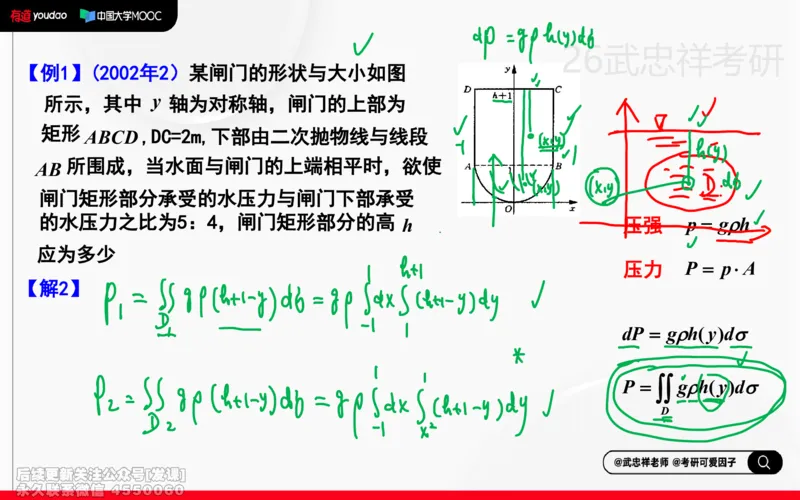 有道 youdao 中国大学MOOC
dP = gρh(y)dσ
26武忠祥考研
【例1】(2002年2）某闸门的形状与大小如图
所示，其中 y 轴为对称轴，闸门的上部为
矩形 ABCD ,DC=2m,下部由二次抛物线与线段
AB 所围成，当水面与闸门的上端相平时，欲使
闸门矩形部分承受的水压力与闸门下部承受
的水压力之比为5：4，闸门矩形部分的高 h
应为多少
y
D C
h+1
(x,y)
-1 1
A B
(x,y)
O x
h(y)
(x,y) D dσ
压强 p = gρh
压力 P = p·A
dP = gρh(y)dσ
P = ∬ gρh(y)dσ
D
【解2】 P₁ = ∬ gρ(h+1-y)dσ = gρ ∫₋₁¹ dx ∫₁ʰ⁺¹ (h+1-y)dy
D₁
*
P₂ = ∬ gρ(h+1-y)dσ = gρ ∫₋₁¹ dx ∫ₓ₂¹ (h+1-y)dy
D₂
@武忠祥老师 @考研可爱因子
后续更新关注公众号[发课]
永久联系微信 4550060